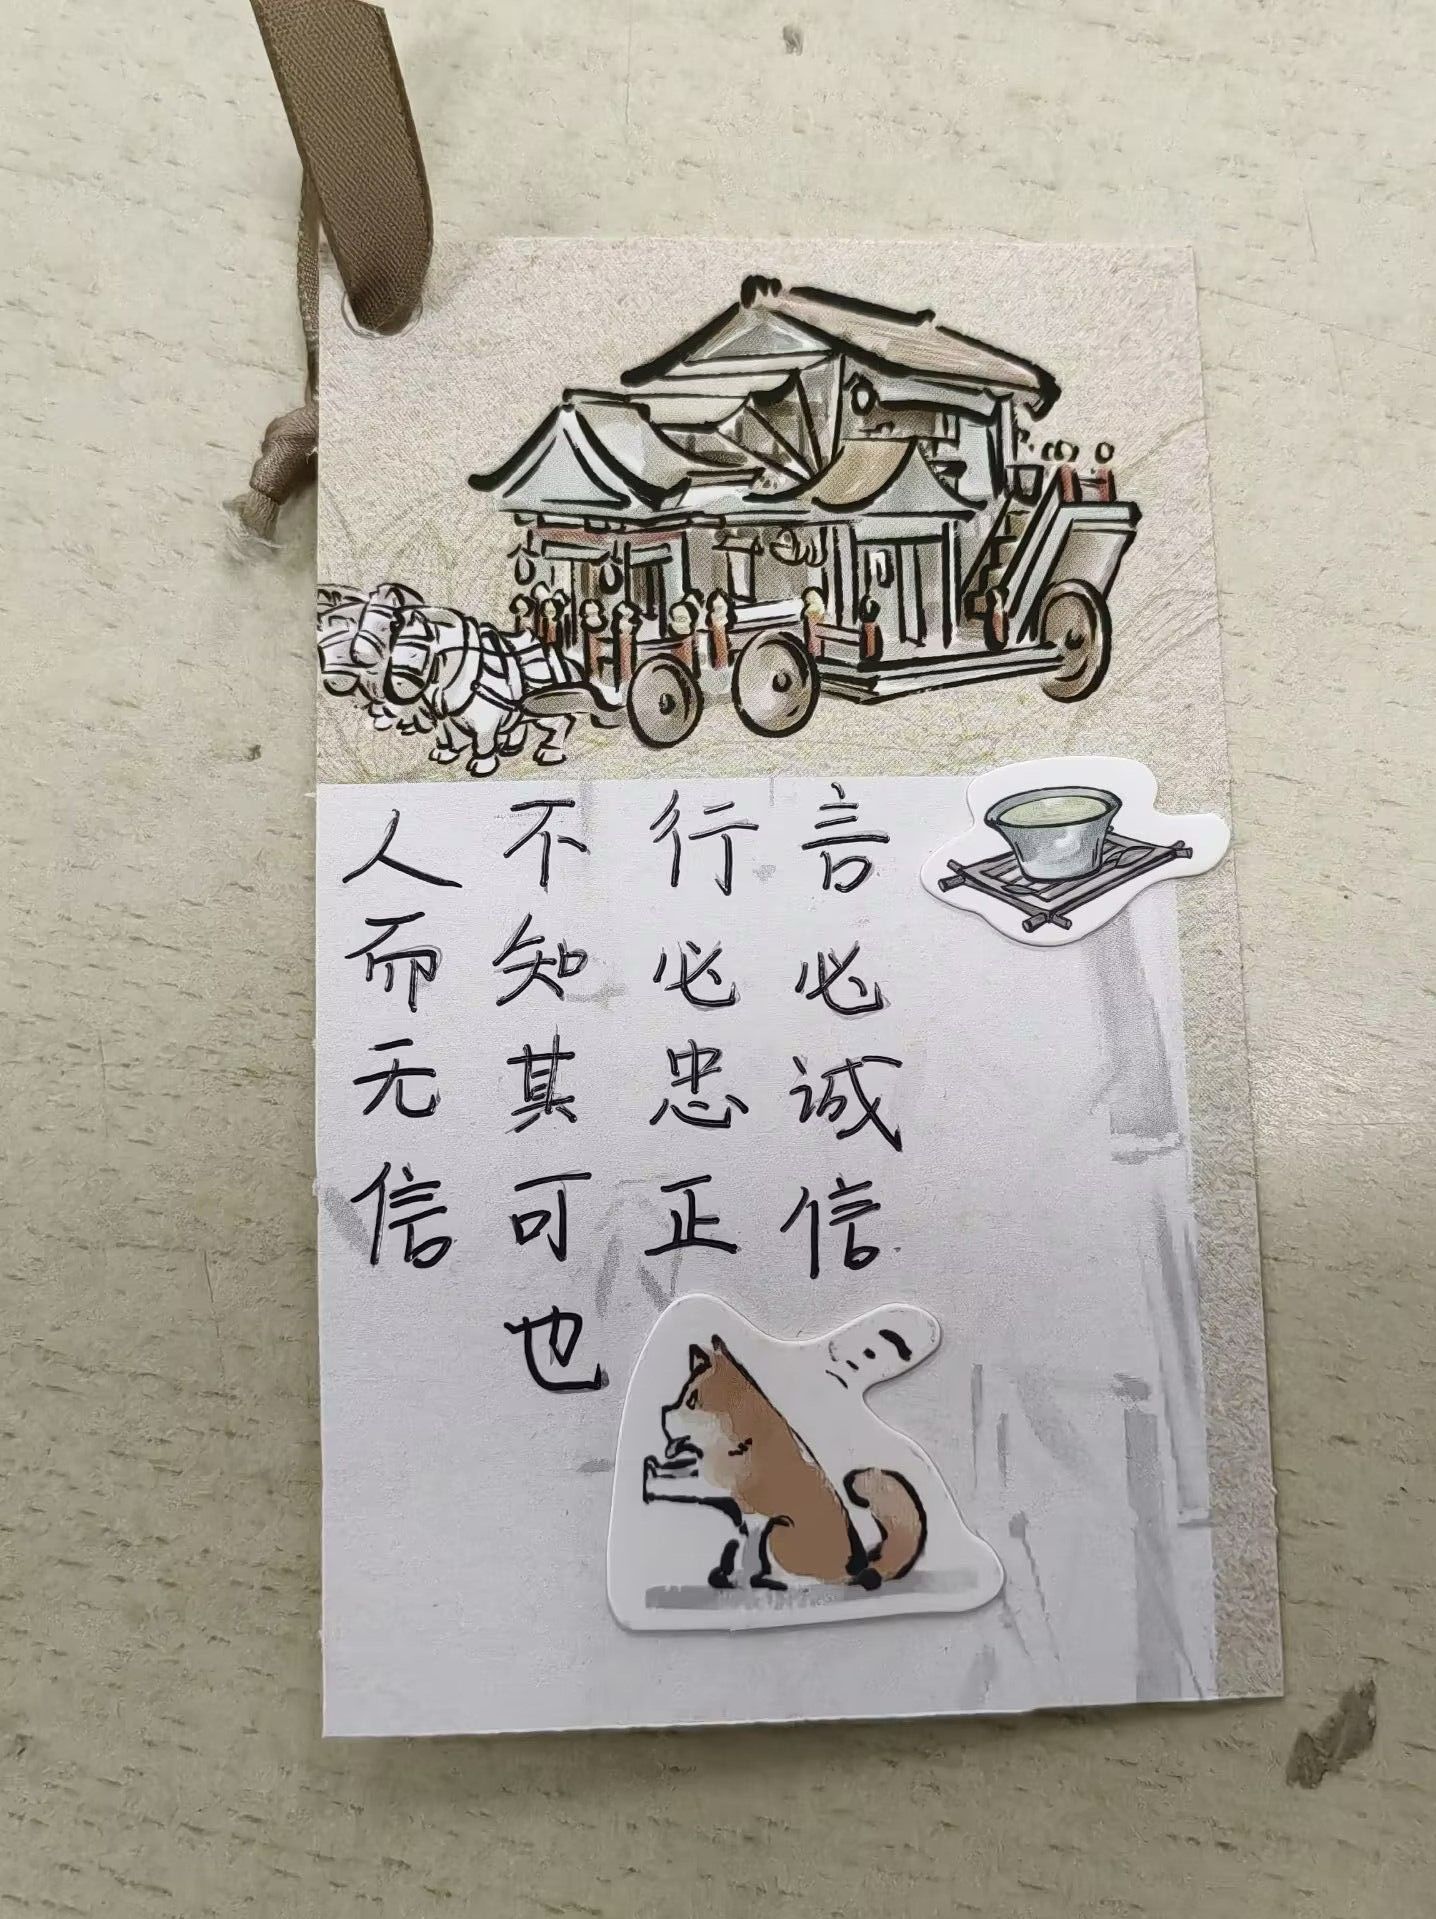 言必诚信
行必忠正
不知其可也
人而无信